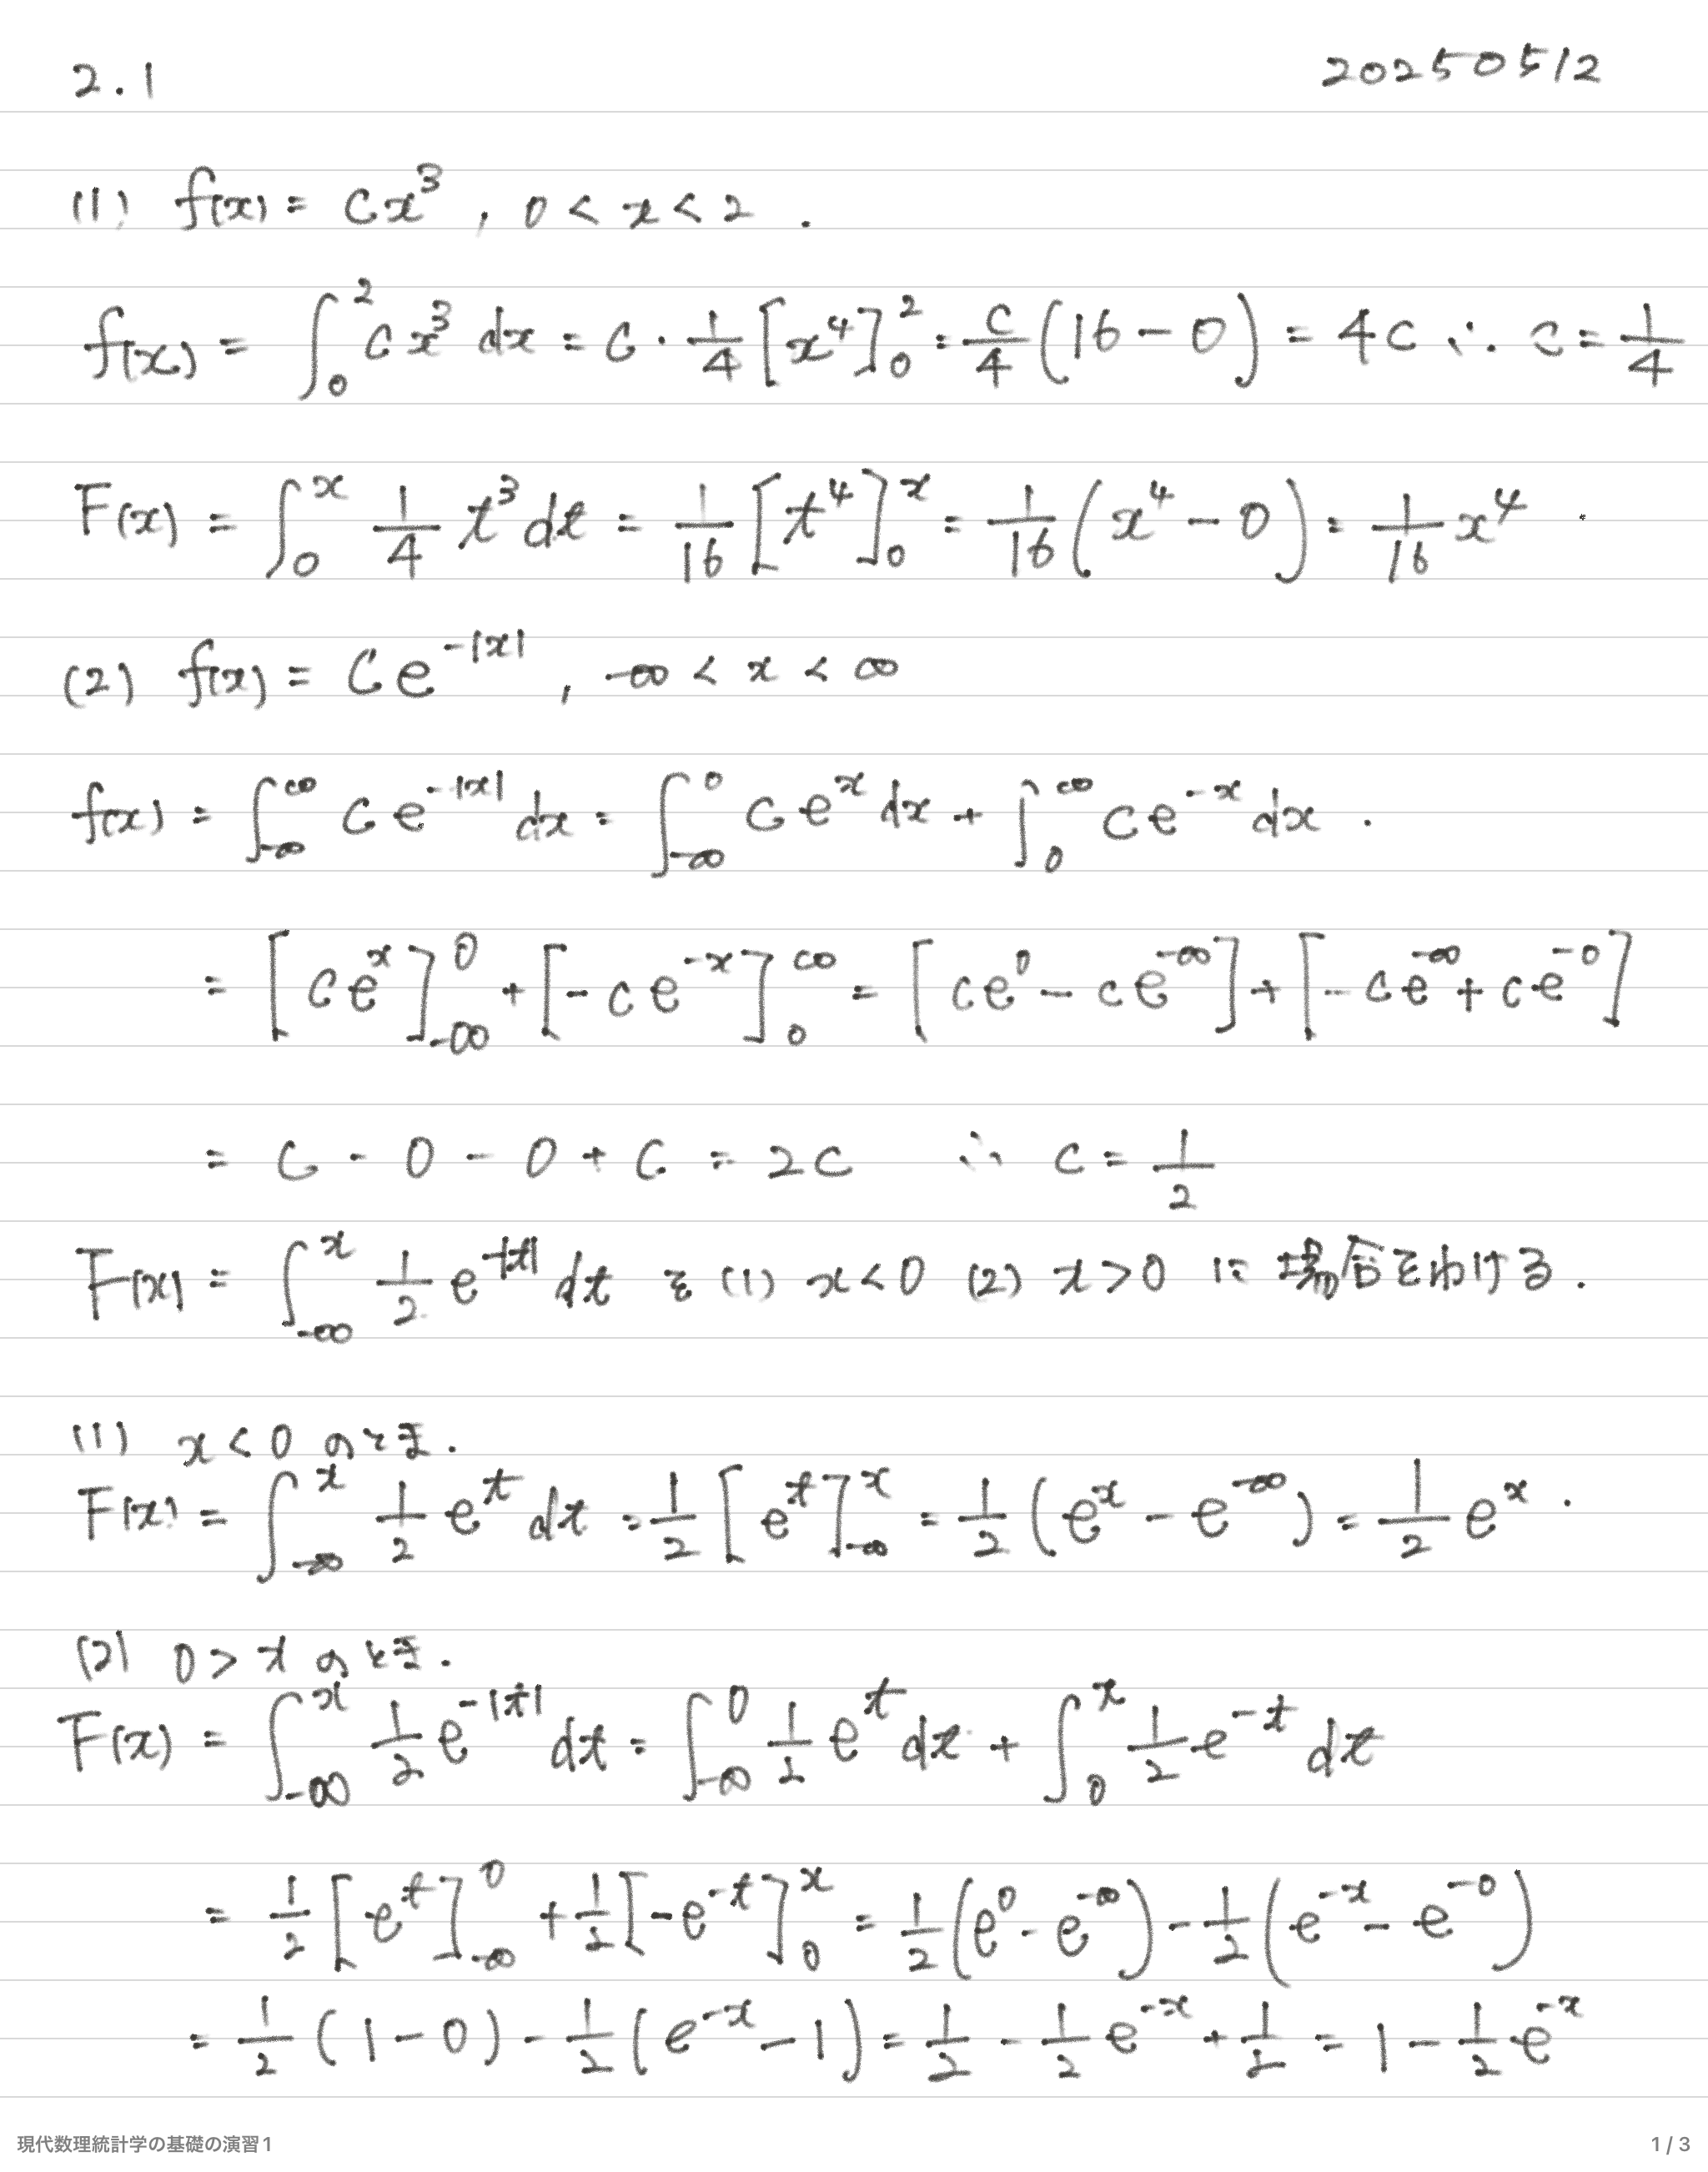 2.1 20250512
(1) f(x) = cx³ , 0 < x < 2 .
f(x) = ∫₀² c x³ dx = c · 1/4 [x⁴]₀² = c/4 (16 - 0) = 4c ∴ c = 1/4
F(x) = ∫₀ˣ 1/4 t³ dt = 1/16 [t⁴]₀ˣ = 1/16 (x⁴ - 0) = 1/16 x⁴ .
(2) f(x) = Ce^{-|x|} , -∞ < x < ∞
f(x) = ∫_{-∞}^{∞} c e^{-|x|} dx = ∫_{-∞}^{0} c e^{x} dx + ∫_{0}^{∞} c e^{-x} dx .
= [ce^{x}]_{-∞}^{0} + [-ce^{-x}]_{0}^{∞} = [ce^{0} - ce^{-∞}] + [-ce^{-∞} + ce^{-0}]
= c - 0 - 0 + c = 2c ∴ c = 1/2
F(x) = ∫_{-∞}^{x} 1/2 e^{-|t|} dt を (1) x<0 (2) x>0 に場合をわける.
(1) x < 0 のとき.
F(x) = ∫_{-∞}^{x} 1/2 e^{t} dt = 1/2 [e^{t}]_{-∞}^{x} = 1/2 (e^{x} - e^{-∞}) = 1/2 e^{x} .
(2) 0 > x のとき.
F(x) = ∫_{-∞}^{x} 1/2 e^{-|t|} dt = ∫_{-∞}^{0} 1/2 e^{t} dt + ∫_{0}^{x} 1/2 e^{-t} dt
= 1/2 [e^{t}]_{-∞}^{0} + 1/2 [-e^{-t}]_{0}^{x} = 1/2 (e^{0} - e^{-∞}) - 1/2 (e^{-x} - e^{-0})
= 1/2 (1 - 0) - 1/2 (e^{-x} - 1) = 1/2 - 1/2 e^{-x} + 1/2 = 1 - 1/2 e^{-x}
現代数理統計学の基礎の演習1 1 / 3